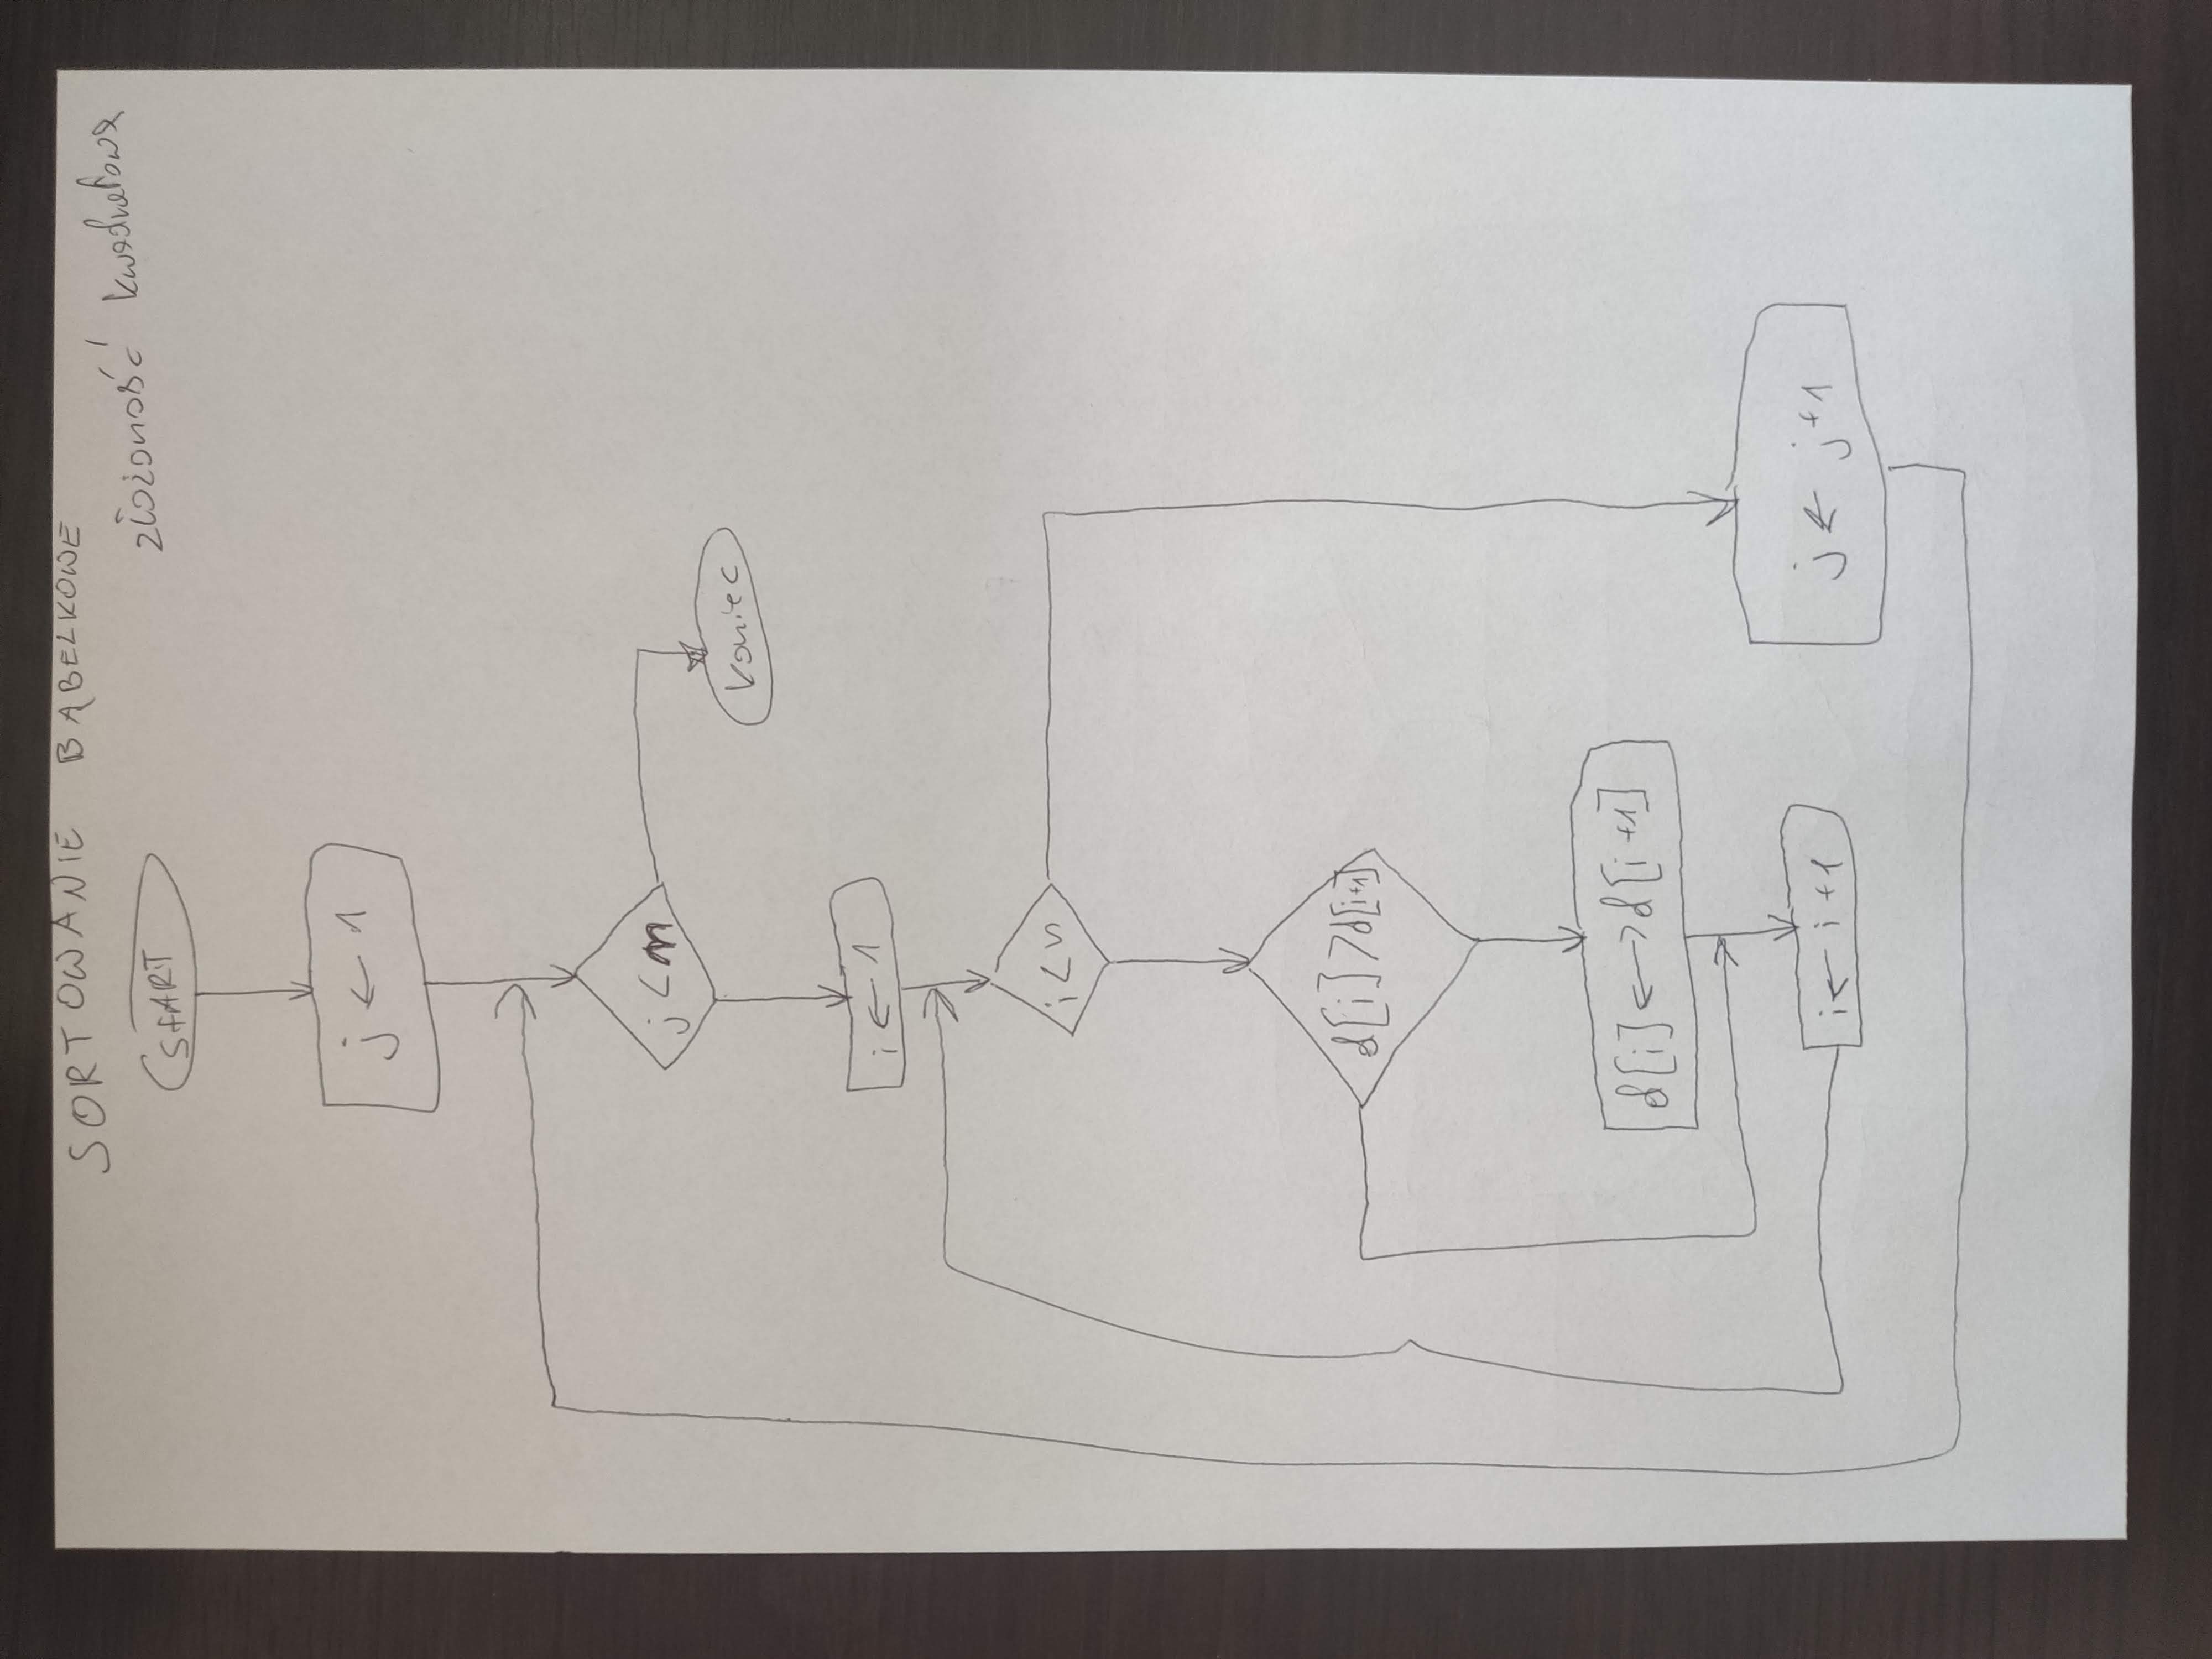 SORTOWANIE BĄBELKOWE
złożoność kwadratowa
START
j ← 1
j < n
koniec
i ← 1
i < n
d[i] > d[i+1]
d[i] ↔ d[i+1]
i ← i+1
j ← j+1